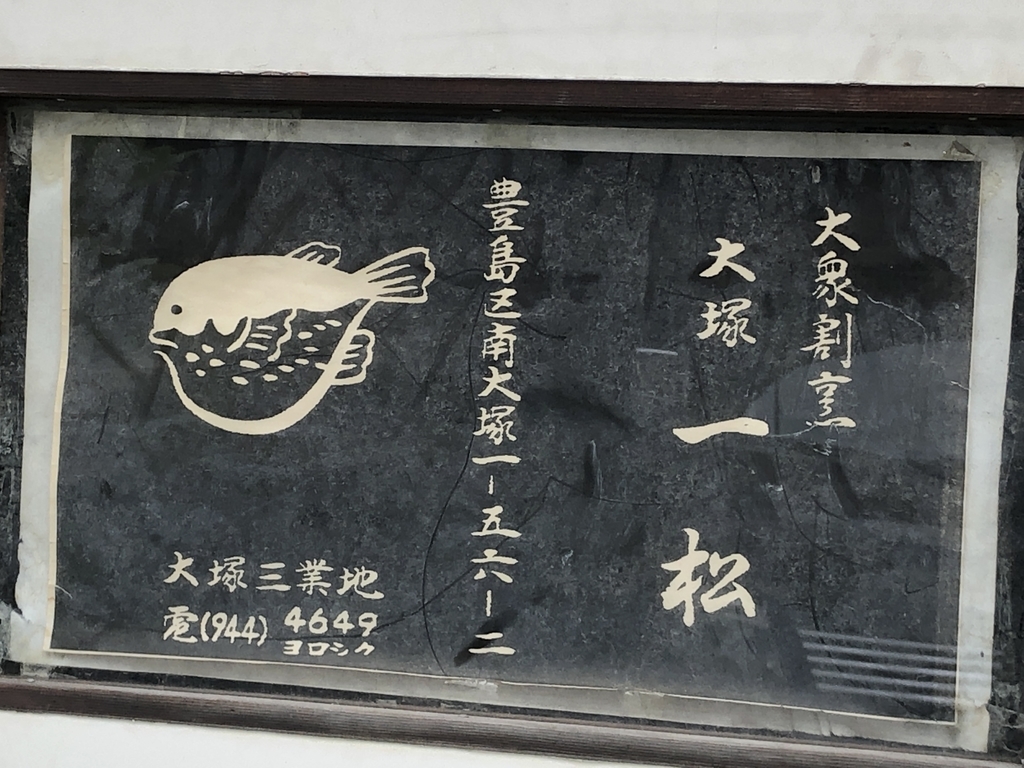 大衆割烹
大塚 一松
豊島区南大塚一-五六-二
大塚三業地
電(944) 4649
ヨロシク